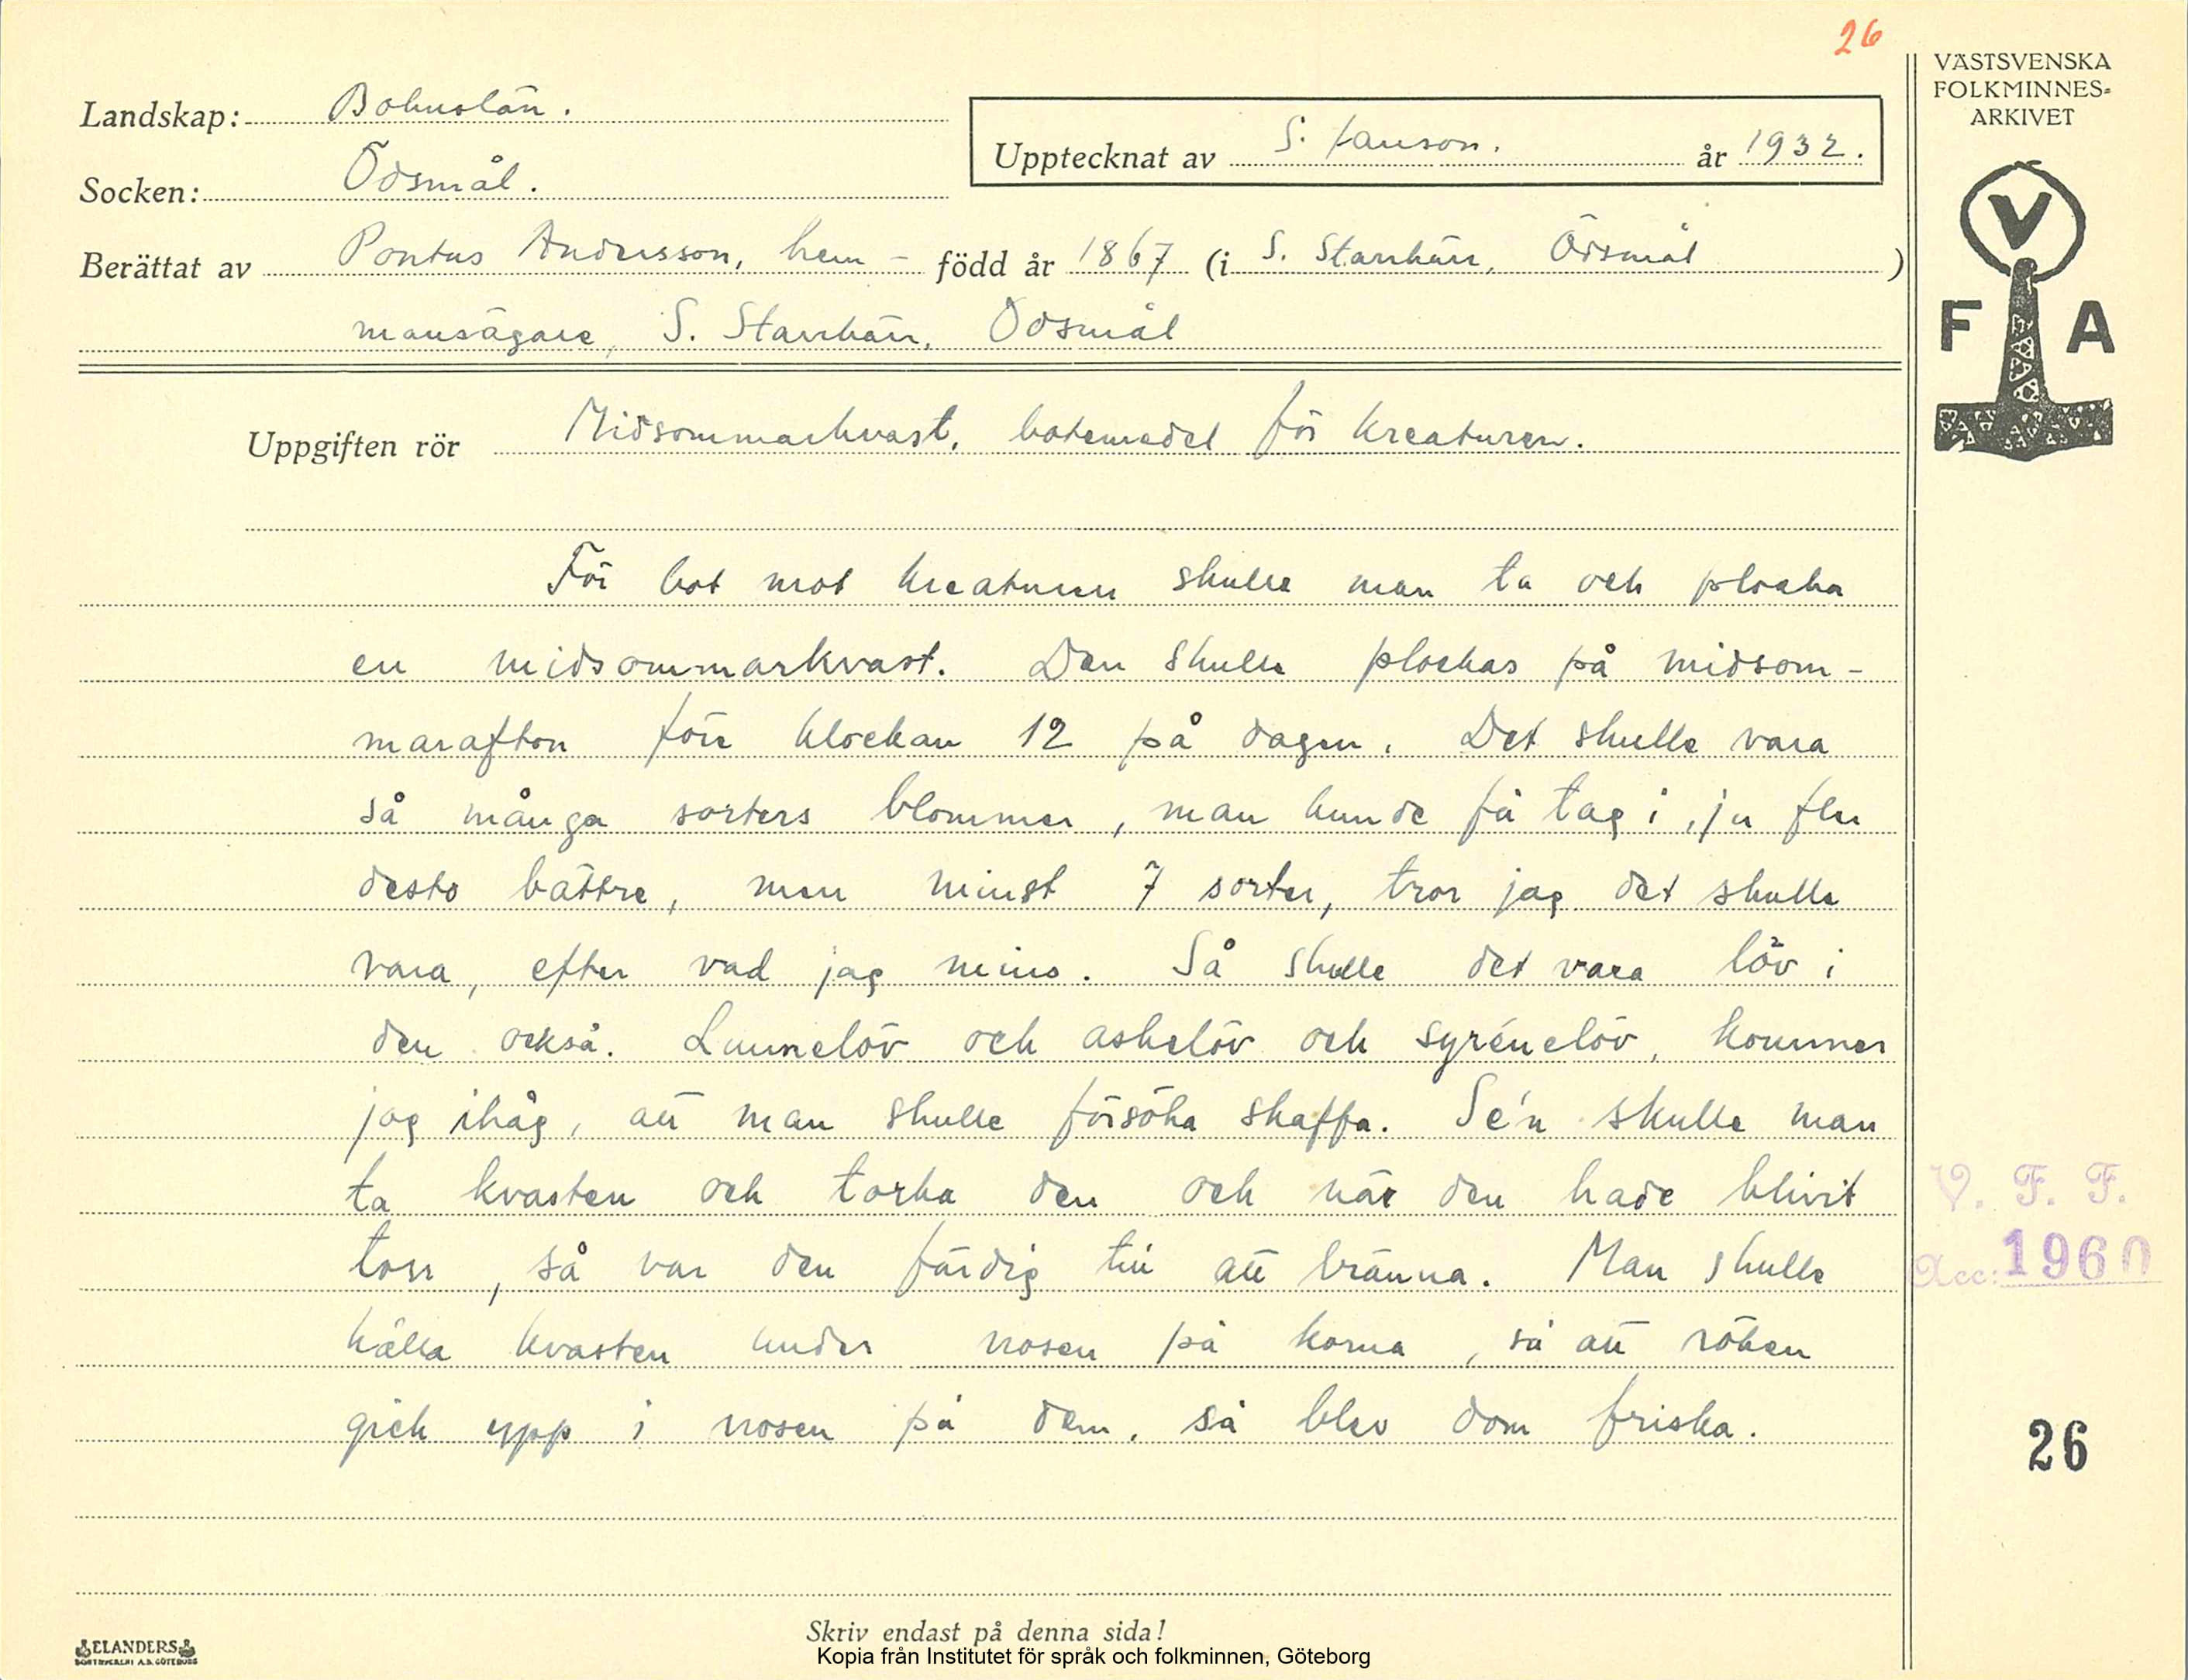 26
VÄSTSVENSKA
FOLKMINNES=
ARKIVET
Landskap: Bohuslän.
Upptecknat av S. Hanson. år 1932.
Socken: Ödsmål.
Berättat av Pontus Andersson, hem- född år 1867 (i S. Starrkärr, Ödsmål)
mansägare, S. Starrkärr, Ödsmål
V
F A
Uppgiften rör Midsommarkvast, botemedel för kreaturen.
För bot mot kreaturen skulle man ta och plocka
en midsommarkvast. Den skulle plockas på midsom-
marafton före klockan 12 på dagen. Det skulle vara
så många sorters blommer, man kunde få tag i, ju fler
desto bättre, men minst 7 sorter, tror jag det skulle
vara, efter vad jag mins. Så skulle det vara löv i
den också. Lunnelöv och askelöv och syrénelöv, kommer
jag ihåg, att man skulle försöka skaffa. Se'n skulle man
ta kvasten och torka den och när den hade blivit
torr, så var den färdig till att bränna. Man skulle
hålla kvasten under nosen på korna, så att röken
gick upp i nosen på dem, så blev dom friska.
V. F. F.
Acc: 1960
26
Skriv endast på denna sida!
ELANDERS
BOKTRYCKERI A.B. GÖTEBORG
Kopia från Institutet för språk och folkminnen, Göteborg